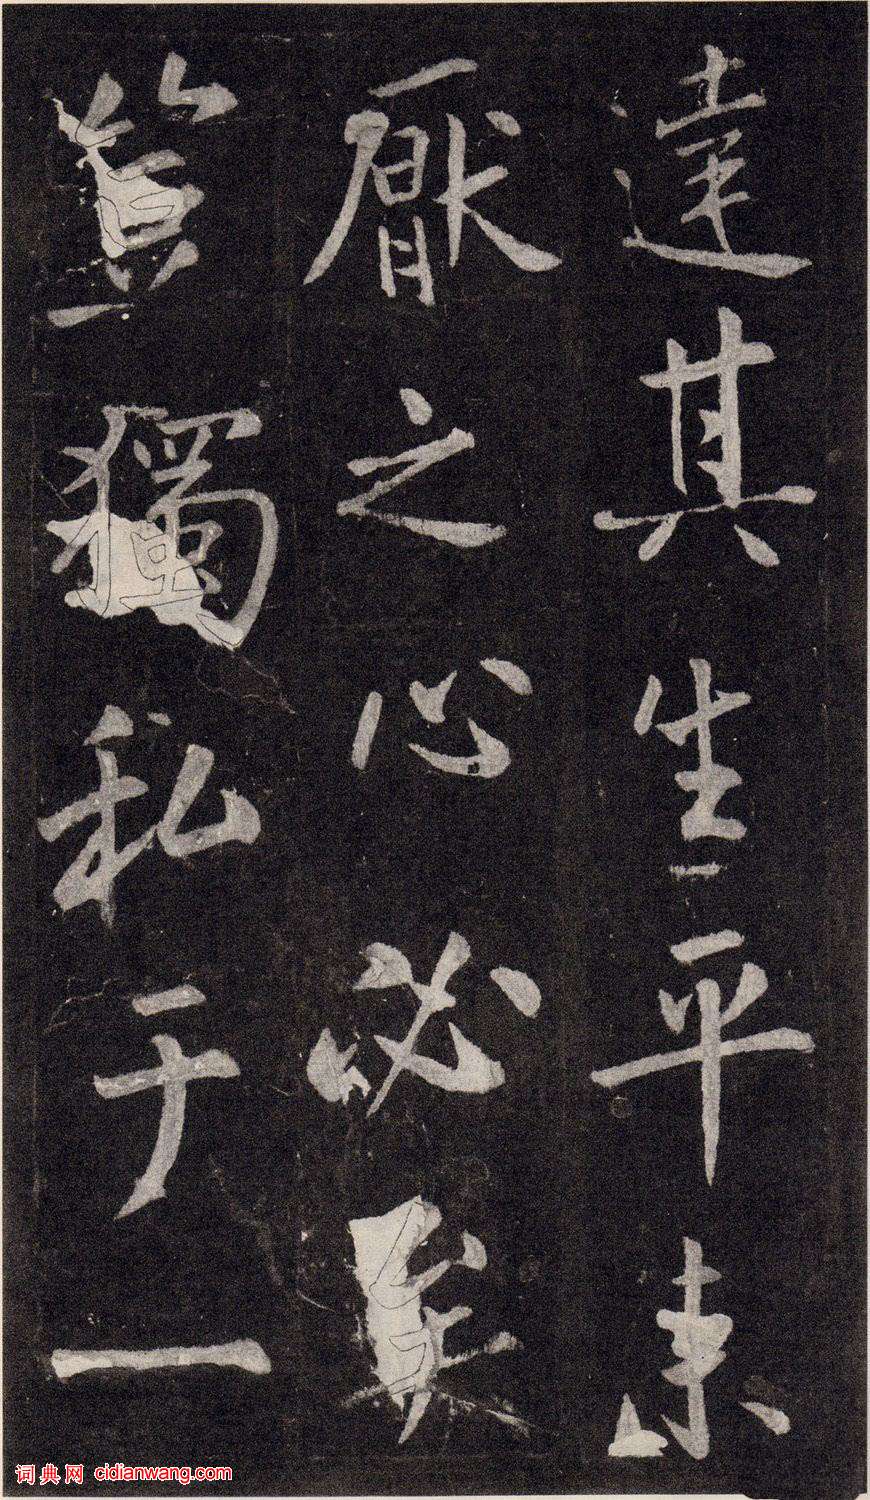 達其生平未
厭之心必矣
豈獨私于一
词典网 cidianwang.com